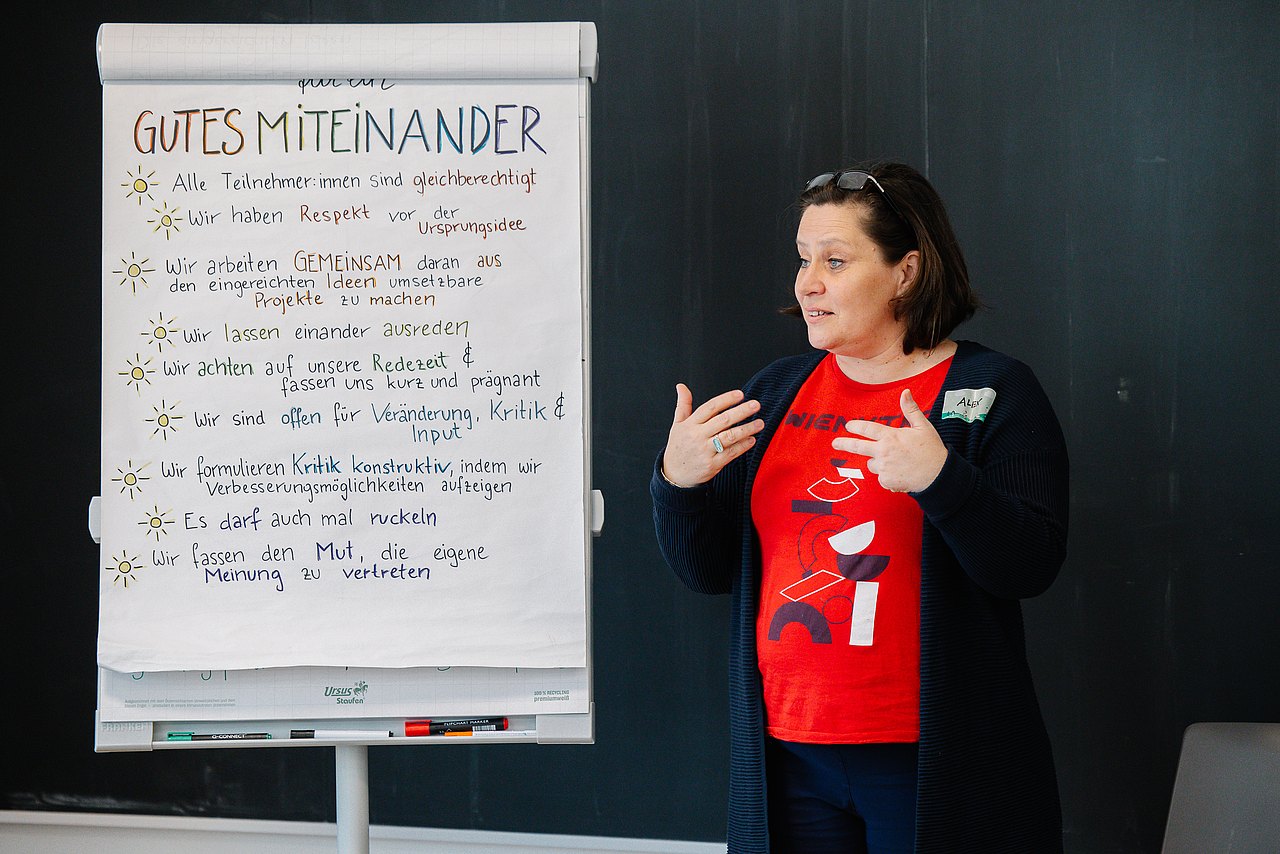 für ein
GUTES MITEINANDER
Alle Teilnehmer:innen sind gleichberechtigt
Wir haben Respekt vor der
Ursprungsidee
Wir arbeiten GEMEINSAM daran aus
den eingereichten Ideen umsetzbare
Projekte zu machen
Wir lassen einander ausreden
Wir achten auf unsere Redezeit &
fassen uns kurz und prägnant
Wir sind offen für Veränderung, Kritik &
Input
Wir formulieren Kritik konstruktiv, indem wir
Verbesserungsmöglichkeiten aufzeigen
Es darf auch mal ruckeln
Wir fassen den Mut, die eigene
Meinung zu vertreten
Ursus
Staufen
100 % RECYCLING
premiumweiß
FRANKEN
Q-CONNECT
FLIPCHART MARKER
ALEX